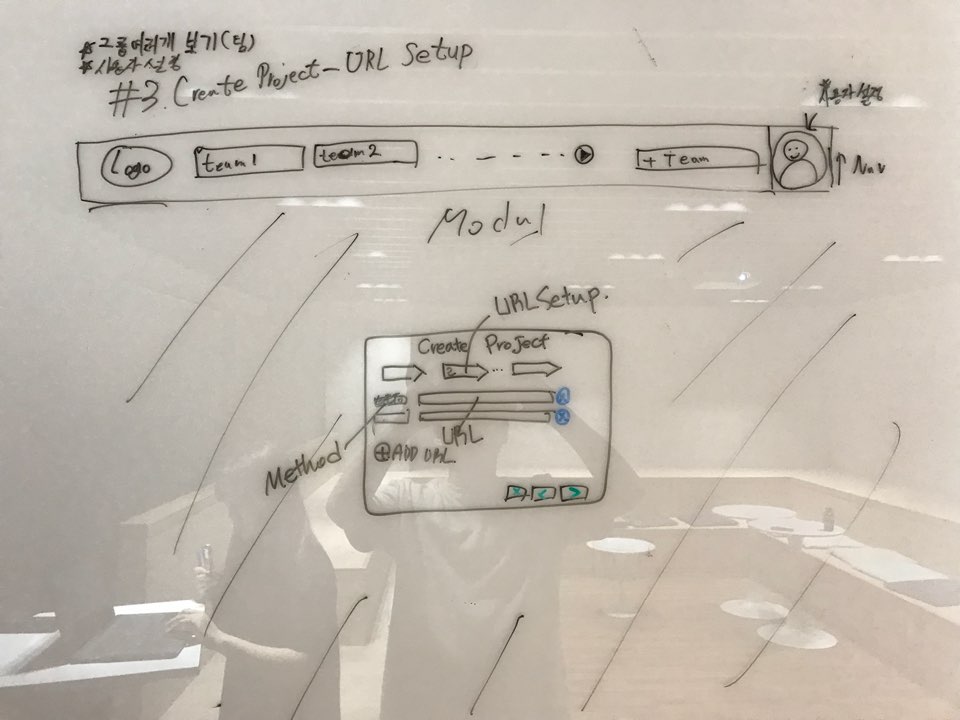 * 그룹 여러개 보기(팀)
* 사용자 설정
#3. Create Project - URL Setup
사용자 설정
Logo
team1
team2
+ Team
↑ Nav
Modul
URL Setup.
Create Project
2
...
URL
Method
⊕ ADD URL
X < >